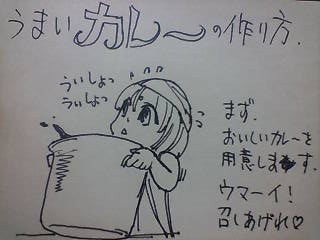 うまいカレ〜の作り方.
ういしょっ
ういしょっ
まず.
おいしいカレ〜を
用意します.
ウマーイ!
召しあげれ♡